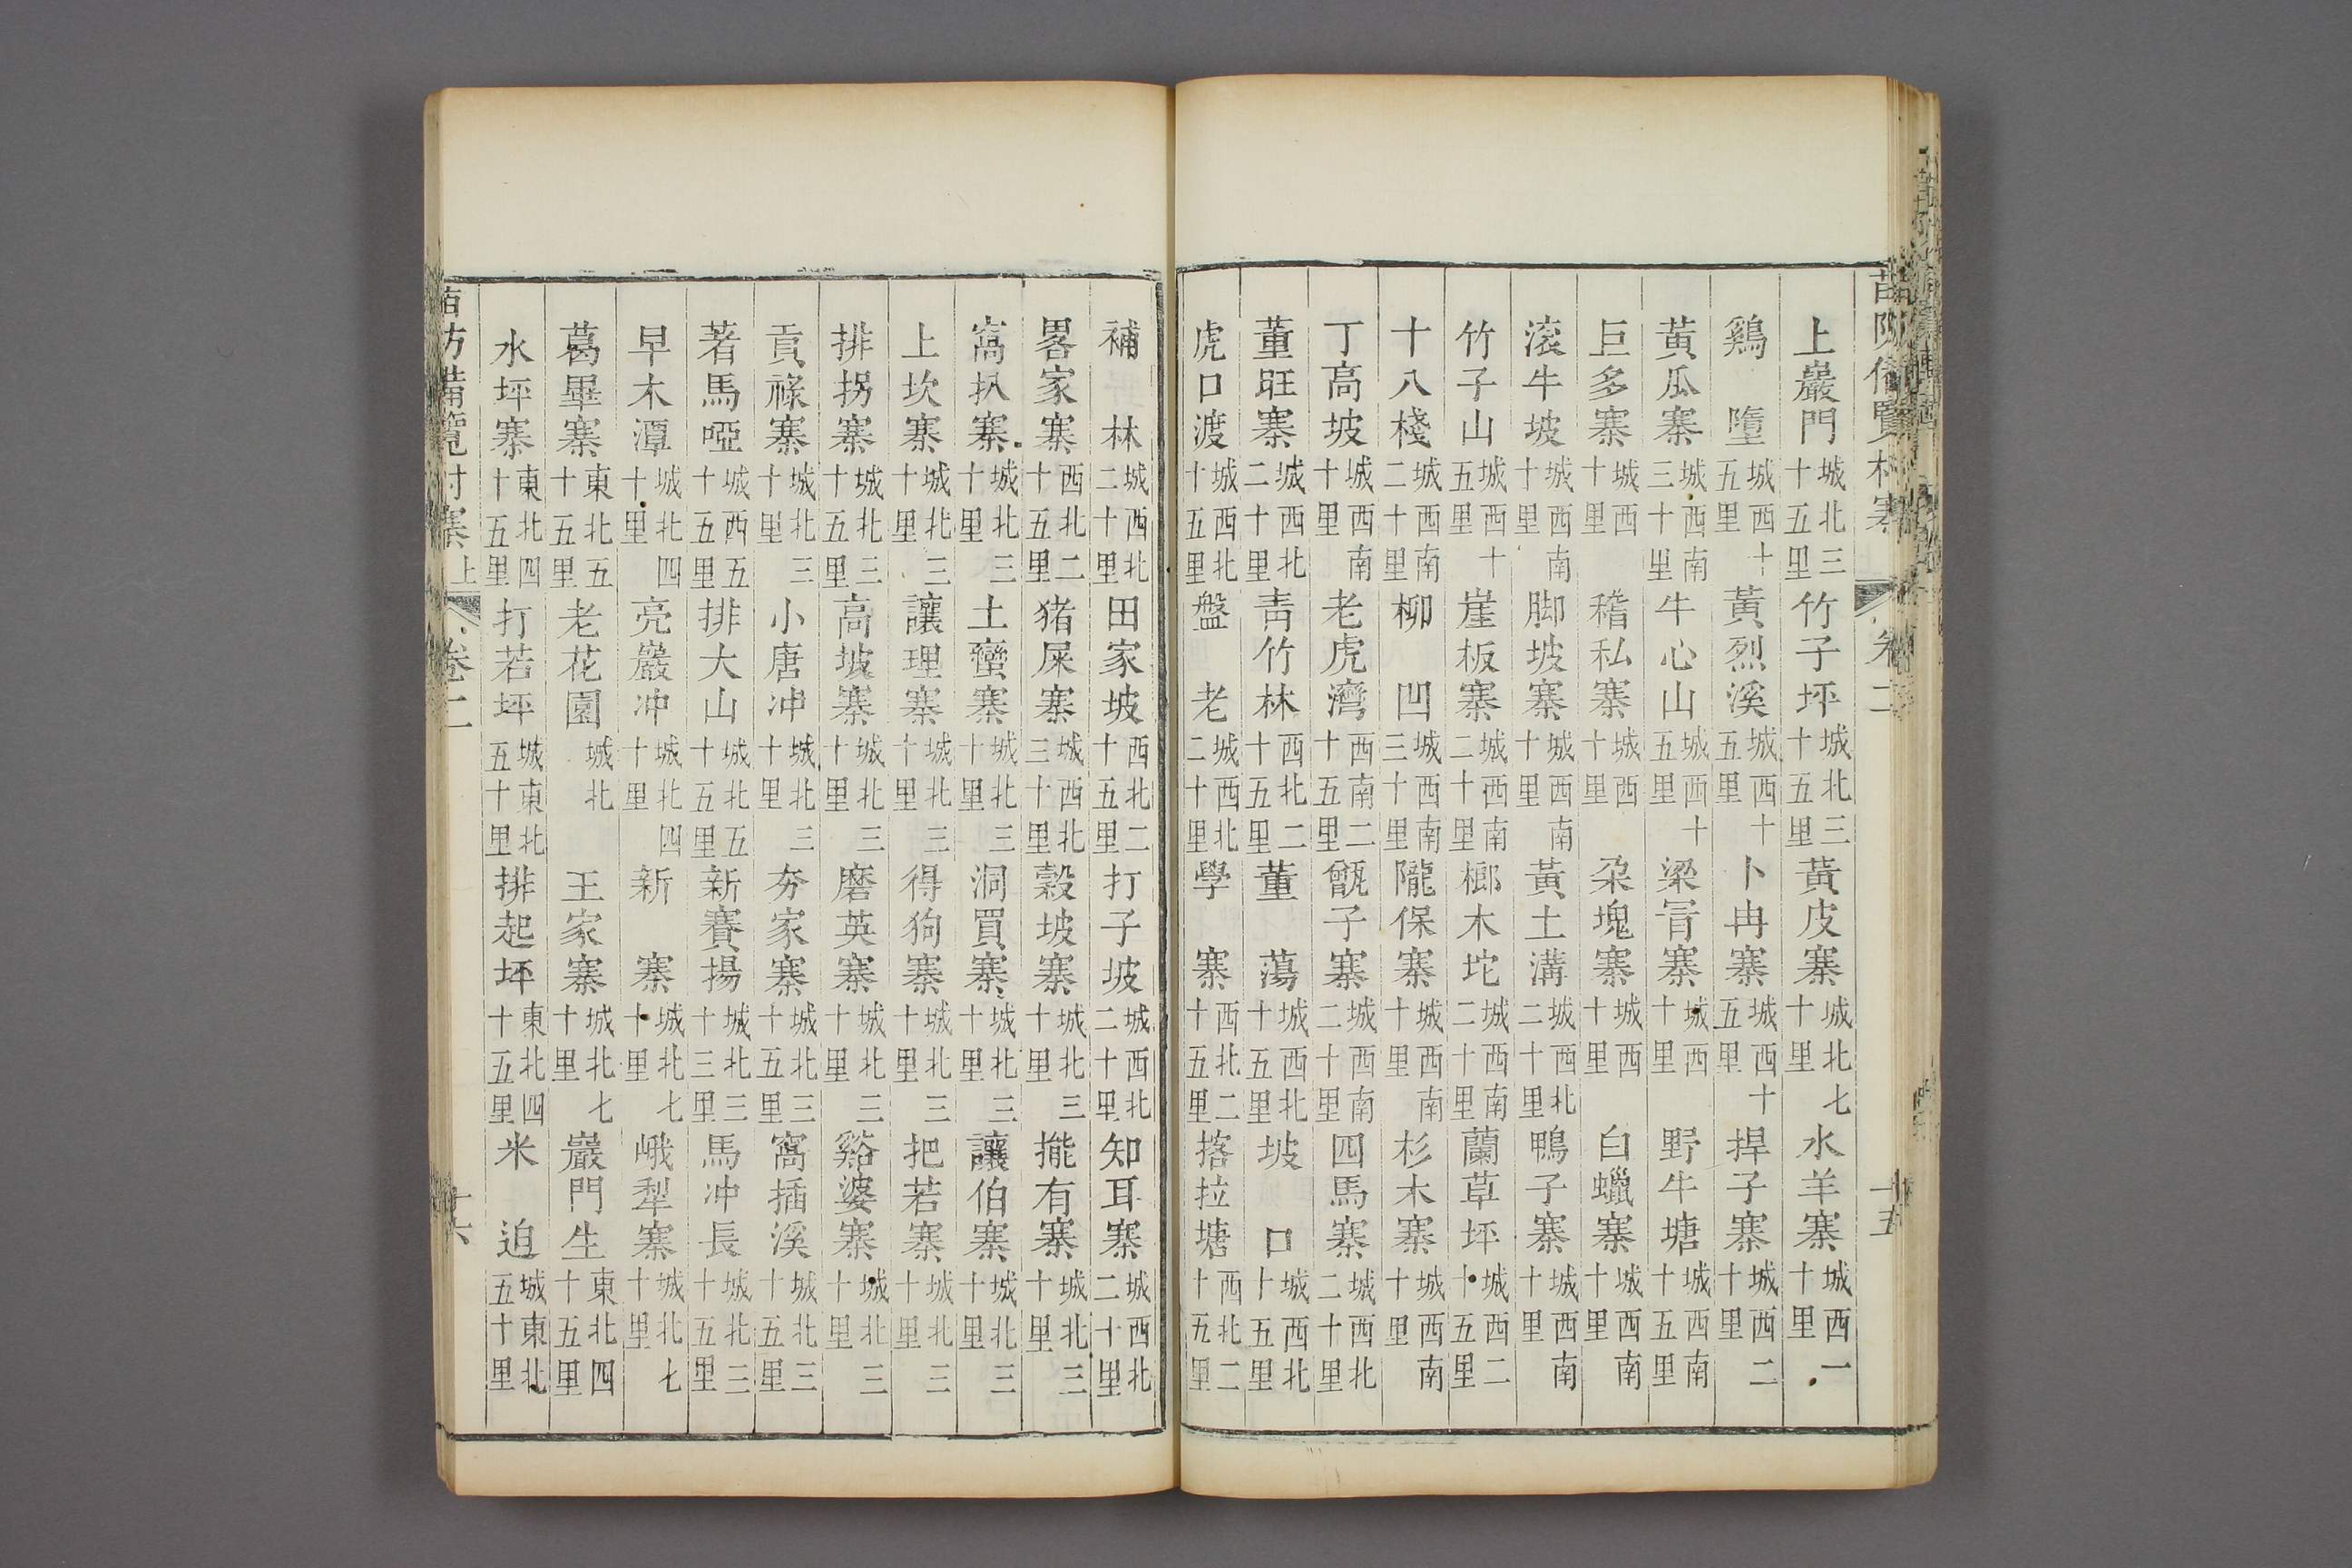 苗防備覽 村寨 卷二 十五
上巖門城北三十五里竹子坪城北三十五里黃皮寨城北七十里水羊寨城西一十里
鷄墮城西十五里黃烈溪城西十五里卜冉寨城西十五里捍子寨城西二十里
黃瓜寨城西南三十里牛心山城西十五里梁冐寨城西十里野牛塘城西南十五里
巨多寨城西十里稽私寨城西十里朶塊寨城西十里白蠟寨城西南十里
滚牛坡城西南十里脚坡寨城西南十里黃土溝城西北二十里鴨子寨城西南十里
竹子山城西十五里崖板寨城西南二十里榔木坨城西南二十里蘭草坪城西二十五里
十八棧城西南二十里柳凹城西南三十里隴保寨城西南十里杉木寨城西南十里
丁高坡城西南十里老虎灣西南二十五里甑子寨城西南二十里四馬寨城西北二十里
董旺寨城西北二十里青竹林西北二十五里董蕩城西北十五里坡口城西北十五里
虎口渡城西北十五里盤老城西北二十里學寨西北二十五里撘拉塘西北二十五里
補林城西北二十里田家坡西北二十五里打子坡城西北二十里知耳寨城西北二十里
畧家寨西北二十五里猪屎寨城西北三十里穀坡寨城北三十里㩳有寨城北三十里
窩扒寨城北三十里土蠻寨城北三十里洞買寨城北三十里讓伯寨城北三十里
上坎寨城北三十里讓理寨城北三十里得狗寨城北三十里把若寨城北三十里
排拐寨城北三十五里高坡寨城北三十里磨英寨城北三十里谿婆寨城北三十里
貢祿寨城北三十里小唐冲城北三十里夯家寨城北三十五里窩插溪城北三十五里
著馬啞城西五十五里排大山城北五十五里新賽揚城北三十三里馬冲長城北三十五里
早木潭城北四十里亮巖冲城北四十里新寨城北七十里峨犁寨城北七十里
葛畢寨東北五十五里老花園城北王家寨城北七十里巖門生東北四十五里
水坪寨東北四十五里打若坪城東北五十里排起坪東北四十五里米迫城東北五十里
苗防備覽 村寨上 卷二 十六